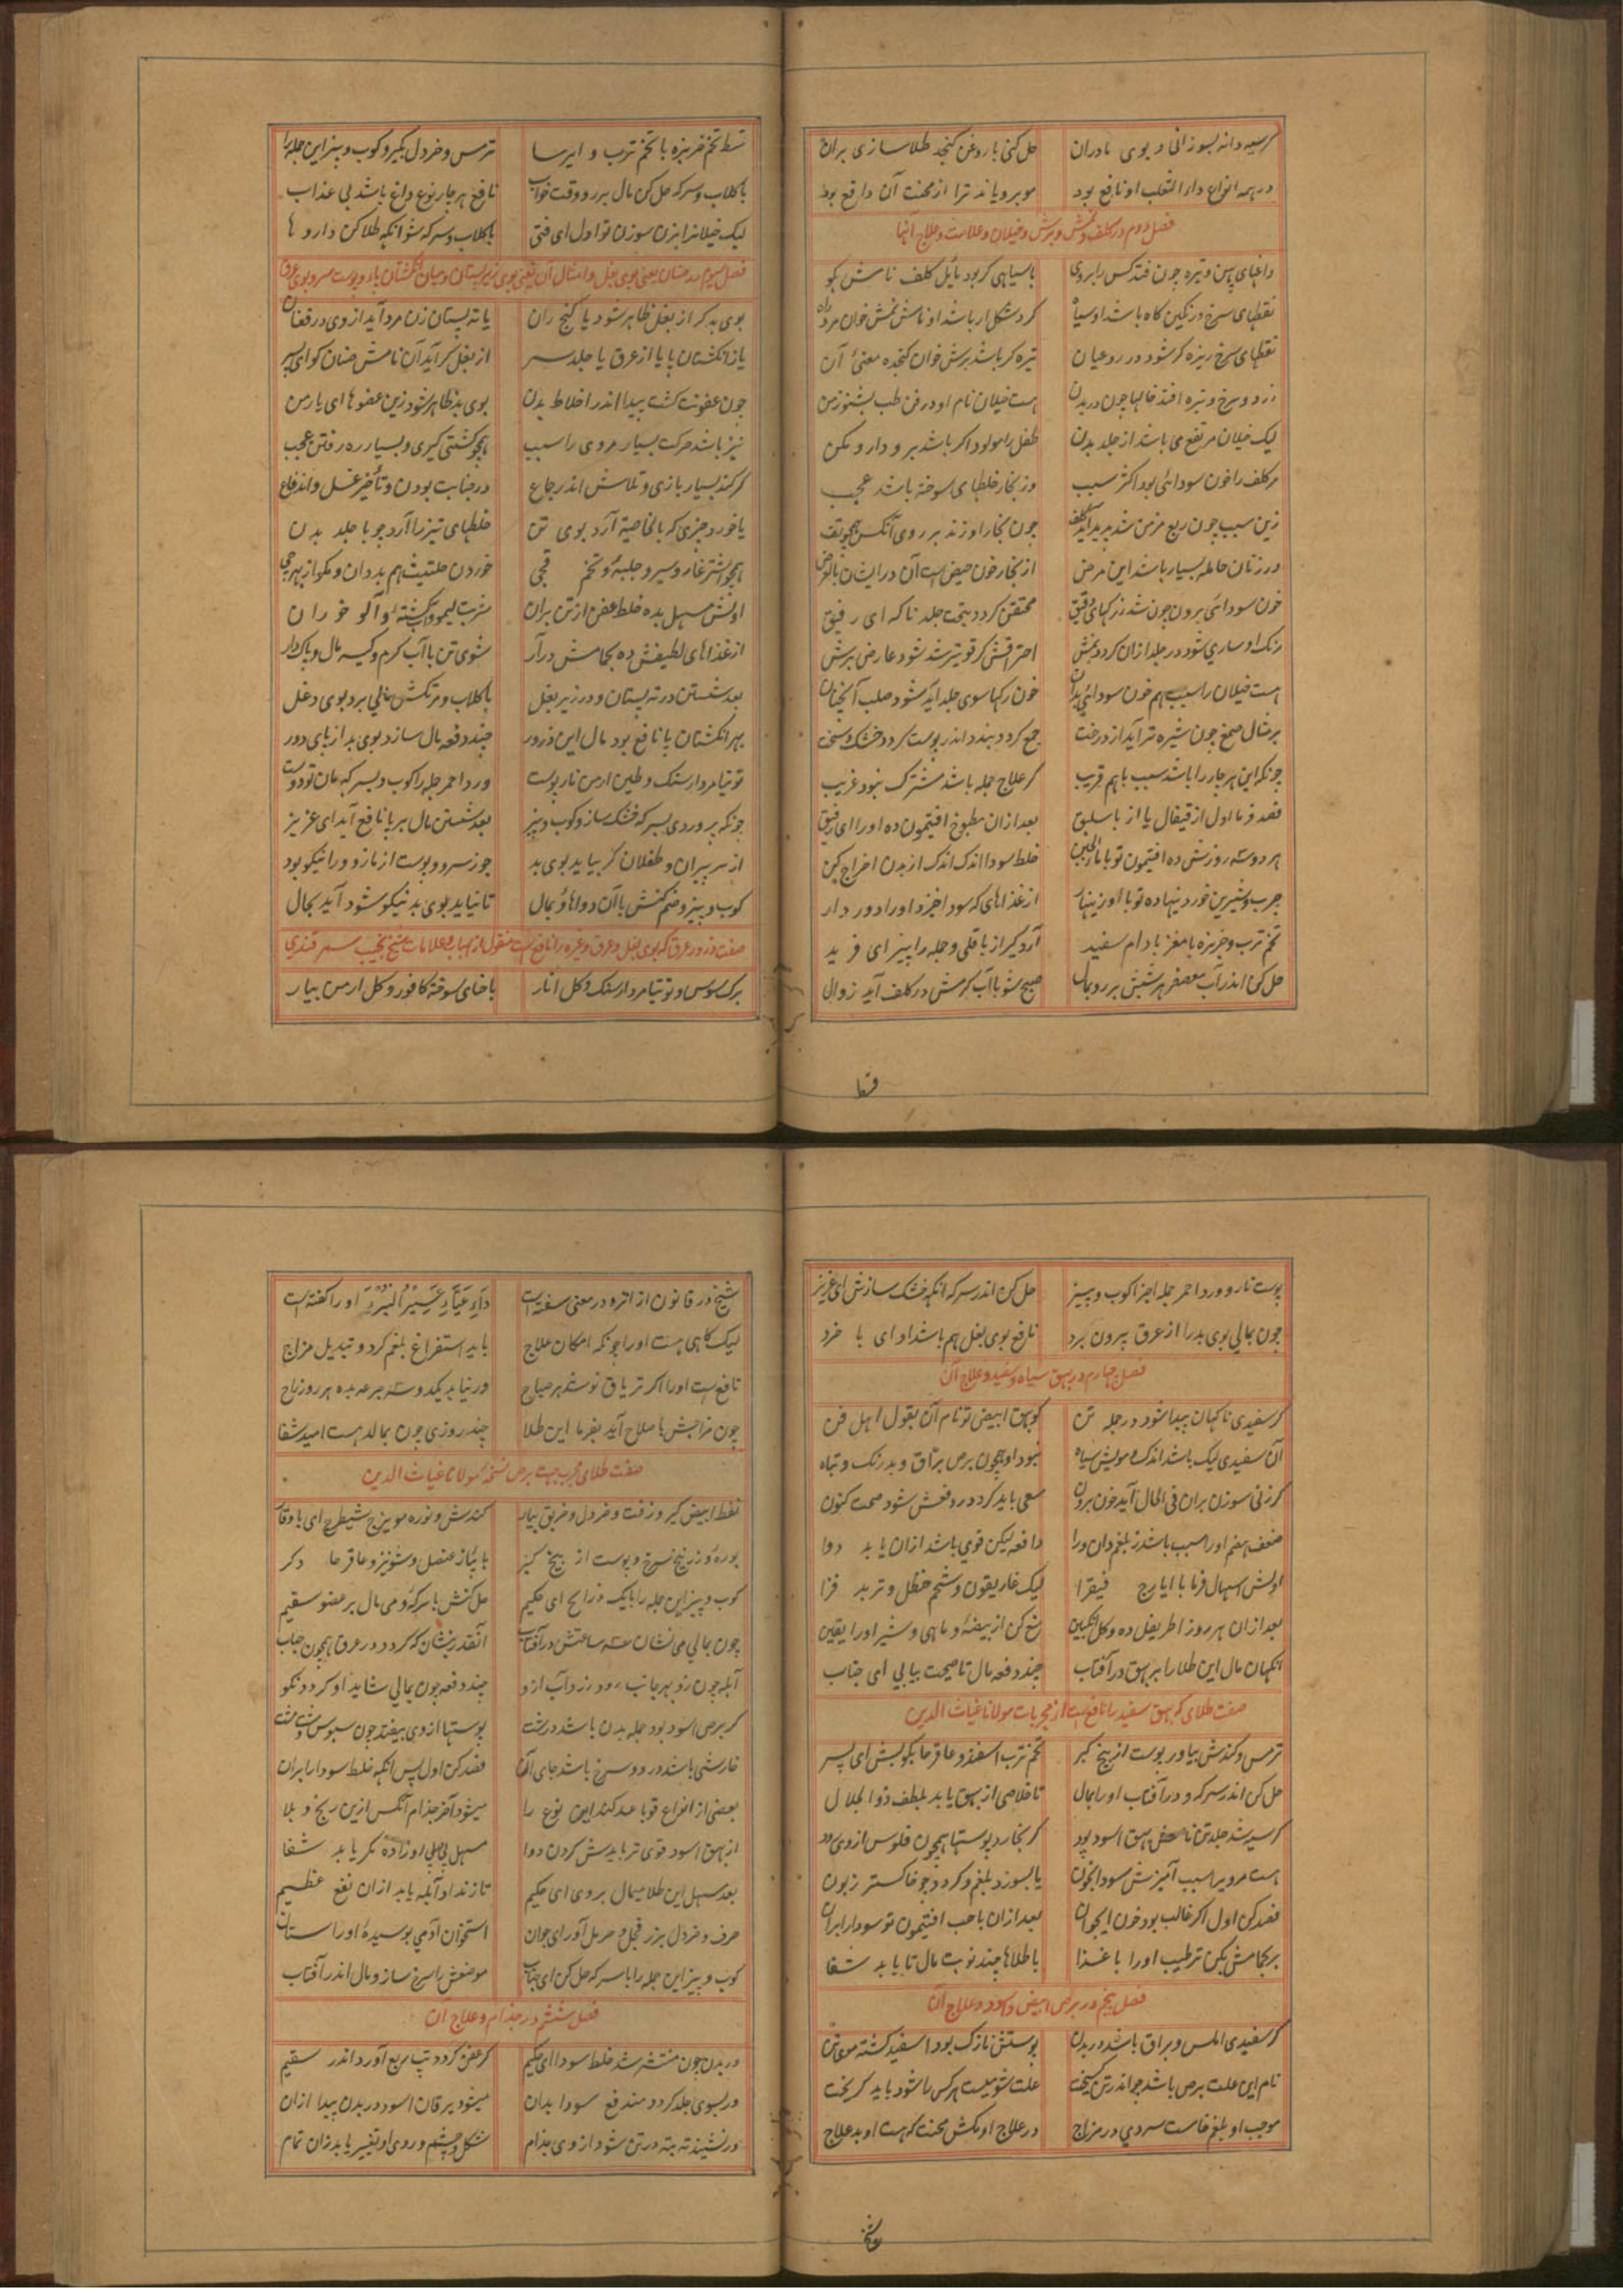 گر سیه دانه بسوزانی و بوی مادران حل کنی با روغن کنجد طلا سازی بران
در همه انواع داء الثعلب او نافع بود مو برویاند ترا از محنت آن دافع بود
فصل دوم در کلف و نمش و برش و خیلان و علامت و علاج آنها
داغهای پهن و تیره چون فتد کس را بروی با سیاهی گر بود مایل کلف نامش بگو
نقطهای سرخ رنگین گاه باشد او سیاه گرد شکل ار باشد او نامش نمش خوان مرد راه
نقطهای سرخ ریزه گر شود در رو عیان تیره گر باشد برش خوان کنجده معنی آن
زرد و سرخ و تیره افتد خالها چون در بدن هست خیلان نام او در فن طب بشنو ز من
لیک خیلان مرتفع می باشد از جلد بدن طفل را مولود اگر باشد برو دارو مکن
مر کلف را خون سودائی بود اکثر سبب وز بخار خلطهای سوخته باشد عجب
زین سبب چون ربع مزمن شد پدید آید کلف چون بخار او زند بر روی آنکس همچو تف
در زنان حامله بسیار باشد این مرض از بخار خون حیض است آن در ایشان بالعرض
خون سودائی برون چون شد ز رکهای دقیق محتقن گردد بتحت جلد ناگه ای رفیق
رنگ او ساری شود در جلد ازان گردد نمش احتراقش گر قویتر شد شود عارض برش
هست خیلان را سبب هم خون سودائی بدان خون رکها سوی جلد آید شود صلب آنچنان
بر مثال صمغ چون شیره تر آید از درخت جمع گردد بندد اندر پوست گردد خشک و سخت
چونکه این هر چار را باشد سبب با هم قریب گر علاج جمله باشد مشترک نبود غریب
فصد فرما اول از قیفال یا از باسلیق بعد ازان مطبوخ افتیمون ده او را ای رفیق
هر دو سه روزش ده افتیمون تو با ماءالجبن خلط سودا اندک اندک از بدن اخراج کن
چرب و شیرین خوردنیها ده تو با او زینهار از غذاهای که سودا خیزد او را دور دار
تخم ترب و خربزه با مغز بادام سفید آرد گیر از باقلی و جمله را بیز ای فرید
حل کن اندر آب معصفر هر شبش بر رو بمال صبح شو با آب گرمش در کلف آید زوال
قسط
قسط تخم خربزه با تخم ترب و ایرسا ترمس و خردل بگیر و کوب و بیز این جمله را
با گلاب و سرکه حل کن مال بر رو وقت خواب نافع هر چار نوع داغ باشد بی عذاب
لیک خیلانرا بزن سوزن تو اول ای فتی با گلاب و سرکه شو آنگه طلا کن داروها
فصل سیوم در صنان یعنی بوی بغل و امثال آن یعنی بوی زیر پستان و میان انگشتان پا و پوست سر و بوی عرق
بوی بد گر از بغل ظاهر شود یا کنج ران یا ته پستان زن مرد آید از وی در فغان
یا ز انگشتان پا یا از عرق یا جلد سر از بغل گر آید آن نامش صنان گو ای پسر
چون عفونت گشت پیدا اندر اخلاط بدن بوی بد ظاهر شود زین عضوها ای یار من
نیز باشد حرکت بسیار مر وی را سبب همچو کشتی گیری و بسیار ره رفتن عجب
گر کند بسیار بازی و تلاش اندر جماع در جنابت بودن و تأخیر غسل و اندفاع
یا خورد چیزی که بالخاصیة آرد بوی تن خلطهای تیز را آرد چو با جلد بدن
همچو اشترغار و سیر و حلبه و تخم خوردن حلتیت هم بد دان
اولش مسهل بده خلط عفن از تن بران شربت لیمو و آب کشته و آلو خوران
از غذاهای لطیفش ده بحمامش درآر شوی تن با آب گرم و کیسه مال و پاک دار
بعد شستن در ته پستان و در زیر بغل با گلاب و مرتکش مالی برد بوی دغل
بهر انگشتان پا نافع بود مال این ذرور چند دفعه مال سازد بوی بد از پای دور
توتیا مردار سنگ و طین ارمن نار پوست ورد احمر جمله را کوب و بسرکه مان تو دوست
چونکه پروردی بسرکه خشک ساز و کوب و بیز بعد شستن مال بر پا نافع آید ای عزیز
از سر پیران و طفلان گر بیاید بوی بد جوز سرو و پوست از نازو ورا نیکو بود
کوب و بیز و ضم کنش با آن دواها و بمال تا نیاید بوی بد نیکو شود آید بحال
صفت ذرور عرق که بوی بغل و عرق و غیره را نافع است منقول از اسباب و علامات شیخ نجیب سمرقندی
برگ سوس و توتیا مردار سنگ و گل انار با حنای سوخته کافور و گل ارمن بیار
پوست نار و ورد احمر جمله اجزا کوب و بیز حل کن اندر سرکه آنگه خشک سازش ای عزیز
چون بمالی بوی بد را از عرق بیرون برد نافع بوی بغل هم باشد او ای با خرد
فصل چهارم در بهق سیاه و سفید و علاج آن
گر سفیدی ناگهان پیدا شود در جلد تن گو بهق ابیض تو نام آن بقول اهل فن
آن سفیدی لیک باشد اندک و مویش سیاه نبود او همچون برص براق و بدرنگ و تباه
گر زنی سوزن بران فی الحال آید خون برون سعی باید کرد در دفعش شود صحت کنون
ضعف هضم او را سبب باشد ز بلغم دان ورا دافعه لیکن قوی باشد ازان یابد دوا
اولش اسهال فرما با ایارج فیقرا لیک غاریقون و شحم حنظل و تربد فزا
بعد ازان هر روز اطریفل ده و گل انگبین منع کن از بیضه و ماهی و شیر او را یقین
آنگهان مال این طلا را بر بهق در آفتاب چند دفعه مال تا صحت بیابی ای جناب
صفت طلای که بهق سفید را نافع است از مجربات مولانا غیاث الدین
ترمس و کندش بیاور پوست از بیخ کبر تخم ترب اسفند و عاقرقرحا بکوبش ای پسر
حل کن اندر سرکه و در آفتاب او را بمال تا خلاصی از بهق یابد بلطف ذوالجلال
گر سیه شد جلد تن ناگه بهق اسود بود گر بخارد پوستها همچون فلوس از وی رود
هست مر وی را سبب آمیزش سودا بخون یا بسوزد بلغم و گردد چو خاکستر زبون
فصد کن اول اگر غالب بود خون ای جوان بعد ازان با حب افتیمون تو سودا را بران
بر بحمامش بکن ترطیب او را با غذا با طلاها چند نوبت مال تا یابد شفا
فصل پنجم در برص ابیض و اسود و علاج آن
گر سفیدی املس و براق باشد در بدن پوستش نازک بود اسفید گشته موی تن
نام این علت برص باشد چو اندر تن گسیخت علت شومیست هر کس را شود باید گریخت
موجب او بلغم خامست سردی در مزاج در علاج او مکش محنت که هست او بد علاج
شیخ
شیخ در قانون از اثر و در معنی سفته است داءِ عیاء عسیر البرء او را گفته است
لیک گاهی هست او را چونکه امکان علاج باید استفراغ بلغم کرد و تبدیل مزاج
نافع است او را اگر تریاق نوشد هر صباح ور نیابد یکدو سه جرعه بده هر روز راح
چون مزاجش با صلاح آید بفرما این طلا چند روزی چون بمالد هست امید شفا
صفت طلای مجرب جهت برص نسخه مولانا غیاث الدین
نفط ابیض گیر و زفت و خردل و خربق بیار کندش و نوره مویزج شیطرج ای باوقار
بوره و زرنیخ سرخ و پوست از بیخ کبر با پیاز عنصل و شونیز و عاقرقرحا دگر
کوب و بیز این جمله را بایک ذراریح ای حکیم حل کنش با سرکه و می مال بر عضو سقیم
چون بمالی می نشان سه ساعتش در آفتاب آنقدر بنشان که گردد در عرق همچون حباب
آبله چون زد بهر جانب رود زرداب ازو چند دفعه چون بمالی شاید او گردد نکو
گر برص اسود بود جمله بدن باشد درشت پوستها از وی بیفتد چون سبوس مشت مشت
خارشی باشد در و سرخ باشد جای آن فصد کن اول پس آنگه خلط سودا را بران
بعضی از انواع قوبا عد کند این نوع را میشود آخر جذام آنکس ازین رنج و بلا
از بهق اسود قوی تر بایدش کردن دوا مسهل پی در پی او را ده مگر یابد شفا
بعد مسهل این طلا میمال بر وی ای حکیم تا زند او آبله یابد ازان نفع عظیم
حرف و خردل بزر فجل و حرمل آور ای جوان استخوان آدمی بوسیده او را ستان
کوب و بیز این جمله را با سرکه حل کن ای جناب موضعش را سرخ ساز و مال اندر آفتاب
فصل ششم در جذام و علاج آن
در بدن چون منتشر شد خلط سودا ای حکیم گر عفن گردد تب ربع آورد اندر سقیم
ور بسوی جلد گردد مندفع سودا بدان میشود یرقان اسود در بدن پیدا ازان
ور نشیند ته بته در تن شود از وی جذام شکل و چشم و روی او تغییر یابد زان تمام